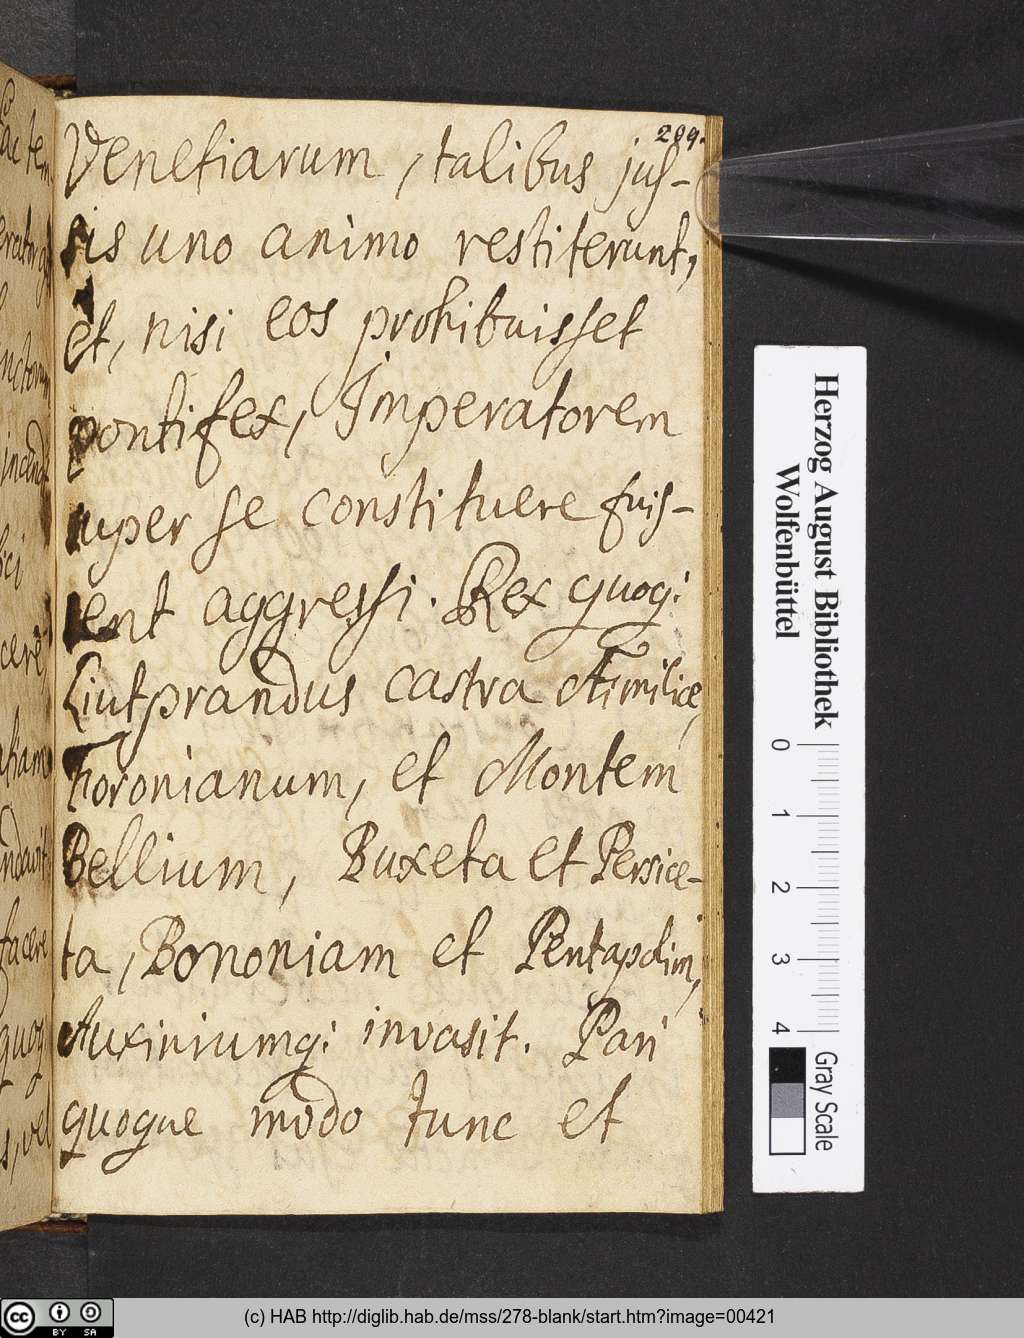 209.
Venetiarum, talibus jus-
sis uno animo restiterunt,
et, nisi eos prohibuisset
pontifex, Imperatorem
super se constituere fuis-
sent aggressi. Rex quoq;
Liutprandus castra Aemiliae,
Foronianum, et Montem
Bellium, Buxeta et Persice-
ta, Bononiam et Pentapolim,
Auxiniumq; invasit. Pari
quoque modo tunc et
facere
Herzog August Bibliothek
Wolfenbüttel
0 1 2 3 4
Gray Scale
cc BY SA
(c) HAB http://diglib.hab.de/mss/278-blank/start.htm?image=00421